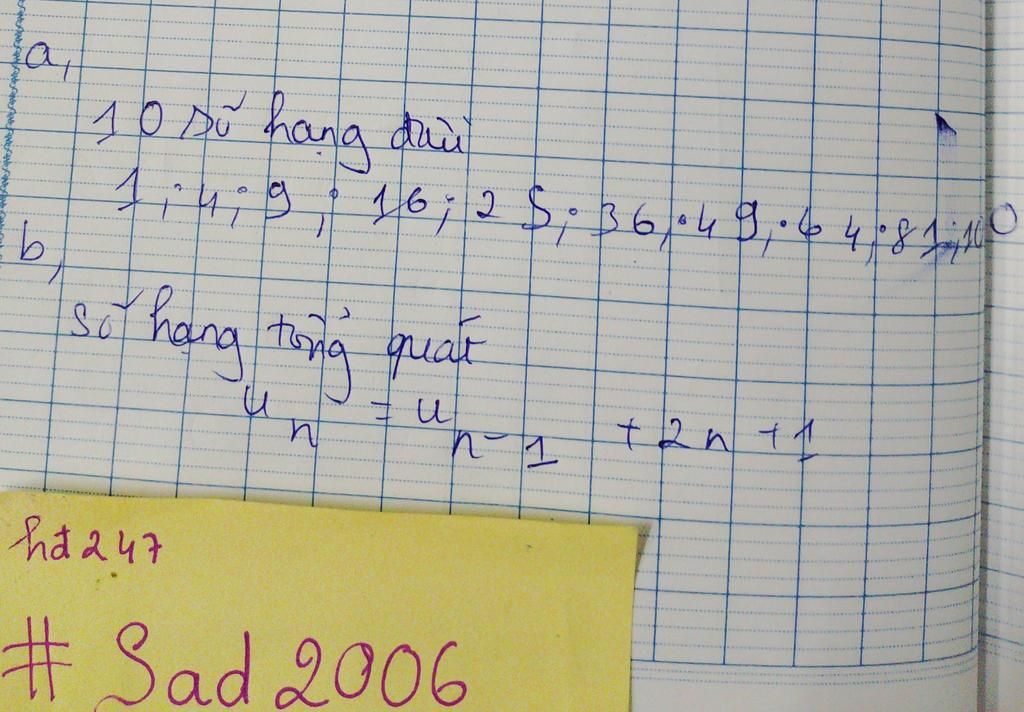 a,
10 số hạng đầu
1 ; 4 ; 9 ; 16 ; 25 ; 36 ; 49 ; 64 ; 81 ; 100
b,
số hạng tổng quát
u_n = u_{n-1} + 2n + 1
hd247
# Sad 2006